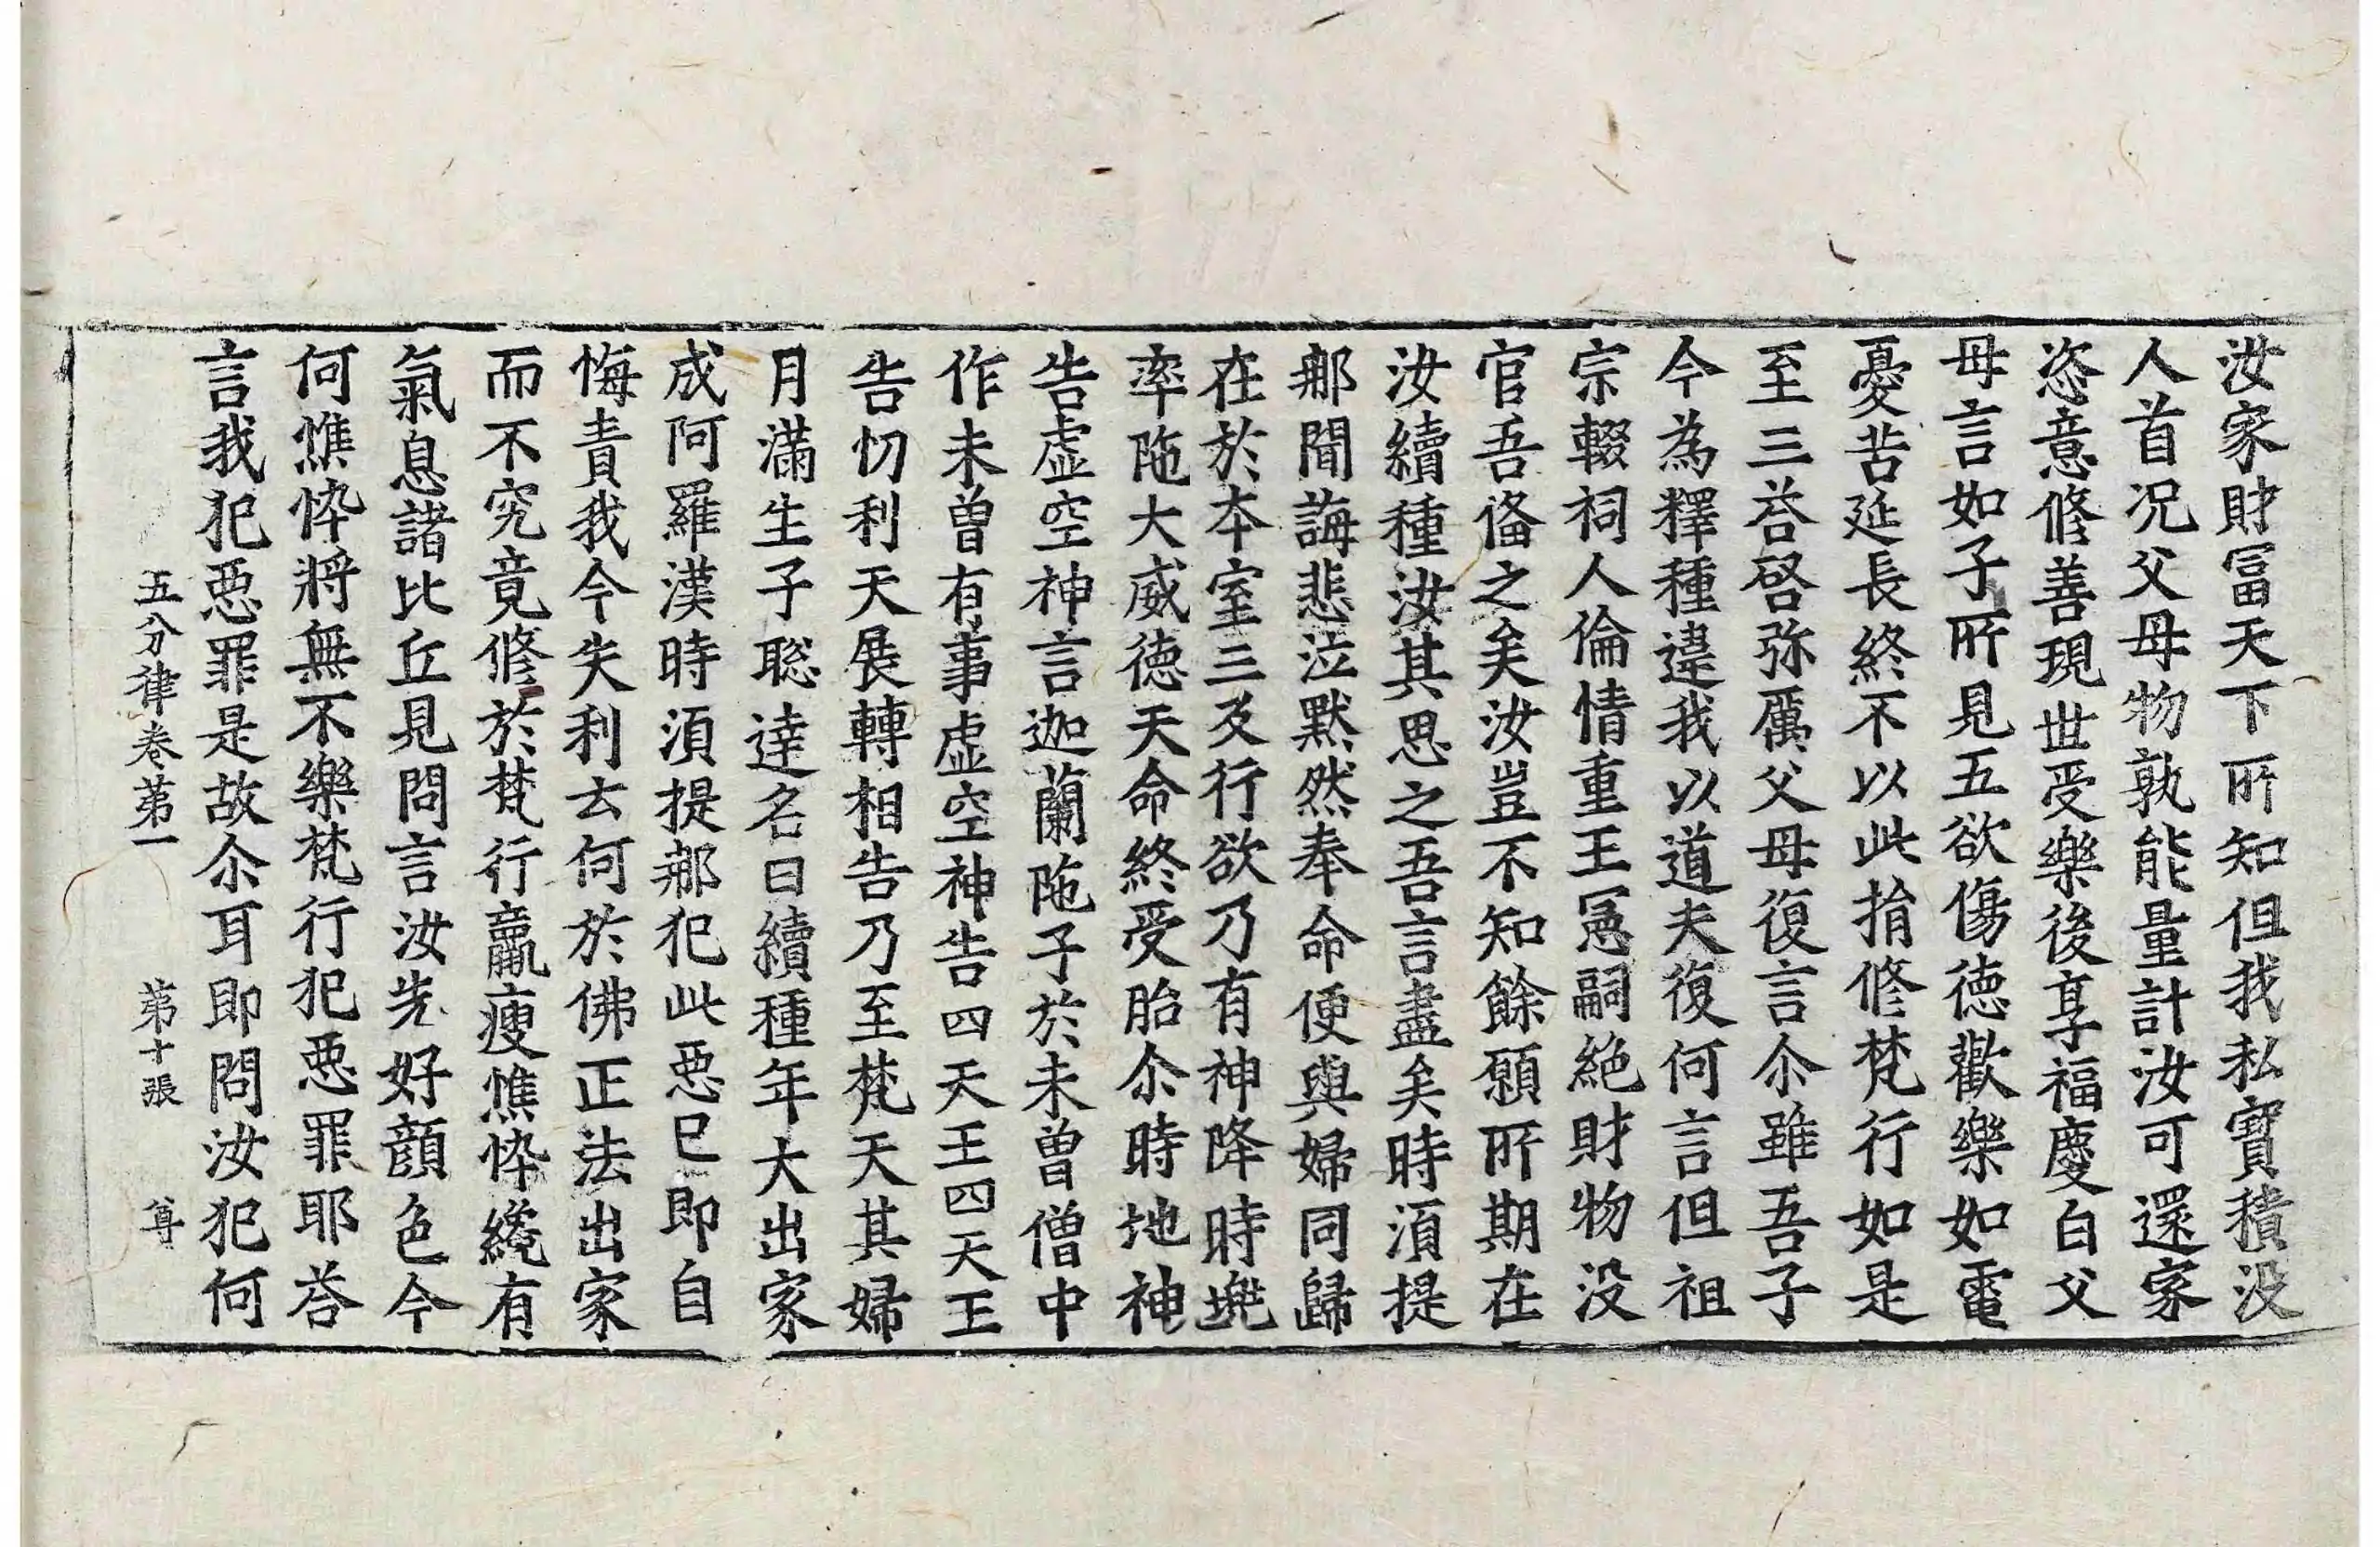 汝家財冨天下所知但我私寳積没
人首况父母物孰能量計汝可還家
恣意修善現世受樂後享福慶白父
母言如子所見五欲傷德歡樂如電
憂苦延長終不以此捐修梵行如是
至三荅啓弥厲父母復言尒雖吾子
今為釋種違我以道夫復何言但祖
宗輟祠人倫情重王憲嗣絶財物没
官吾俻之矣汝豈不知餘願所期在
汝續種汝其思之吾言盡矣時湏提
那聞誨悲泣黙然奉命便與婦同歸
在於夲室三反行欲乃有神降時兠
率陁大威德天命終受胎尒時地神
告虚空神言迦蘭陁子於未曽僧中
作未曽有事虚空神告四天王四天王
告忉利天展轉相告乃至梵天其婦
月滿生子聡達名曰續種年大出家
成阿羅漢時湏提那犯此惡已即自
悔責我今失利云何於佛正法出家
而不究竟修於梵行羸瘦憔悴纔有
氣息諸比丘見問言汝先好顔色今
何憔悴將無不樂梵行犯惡罪耶荅
言我犯惡罪是故尒耳即問汝犯何
五分律卷第一 第十張 尊